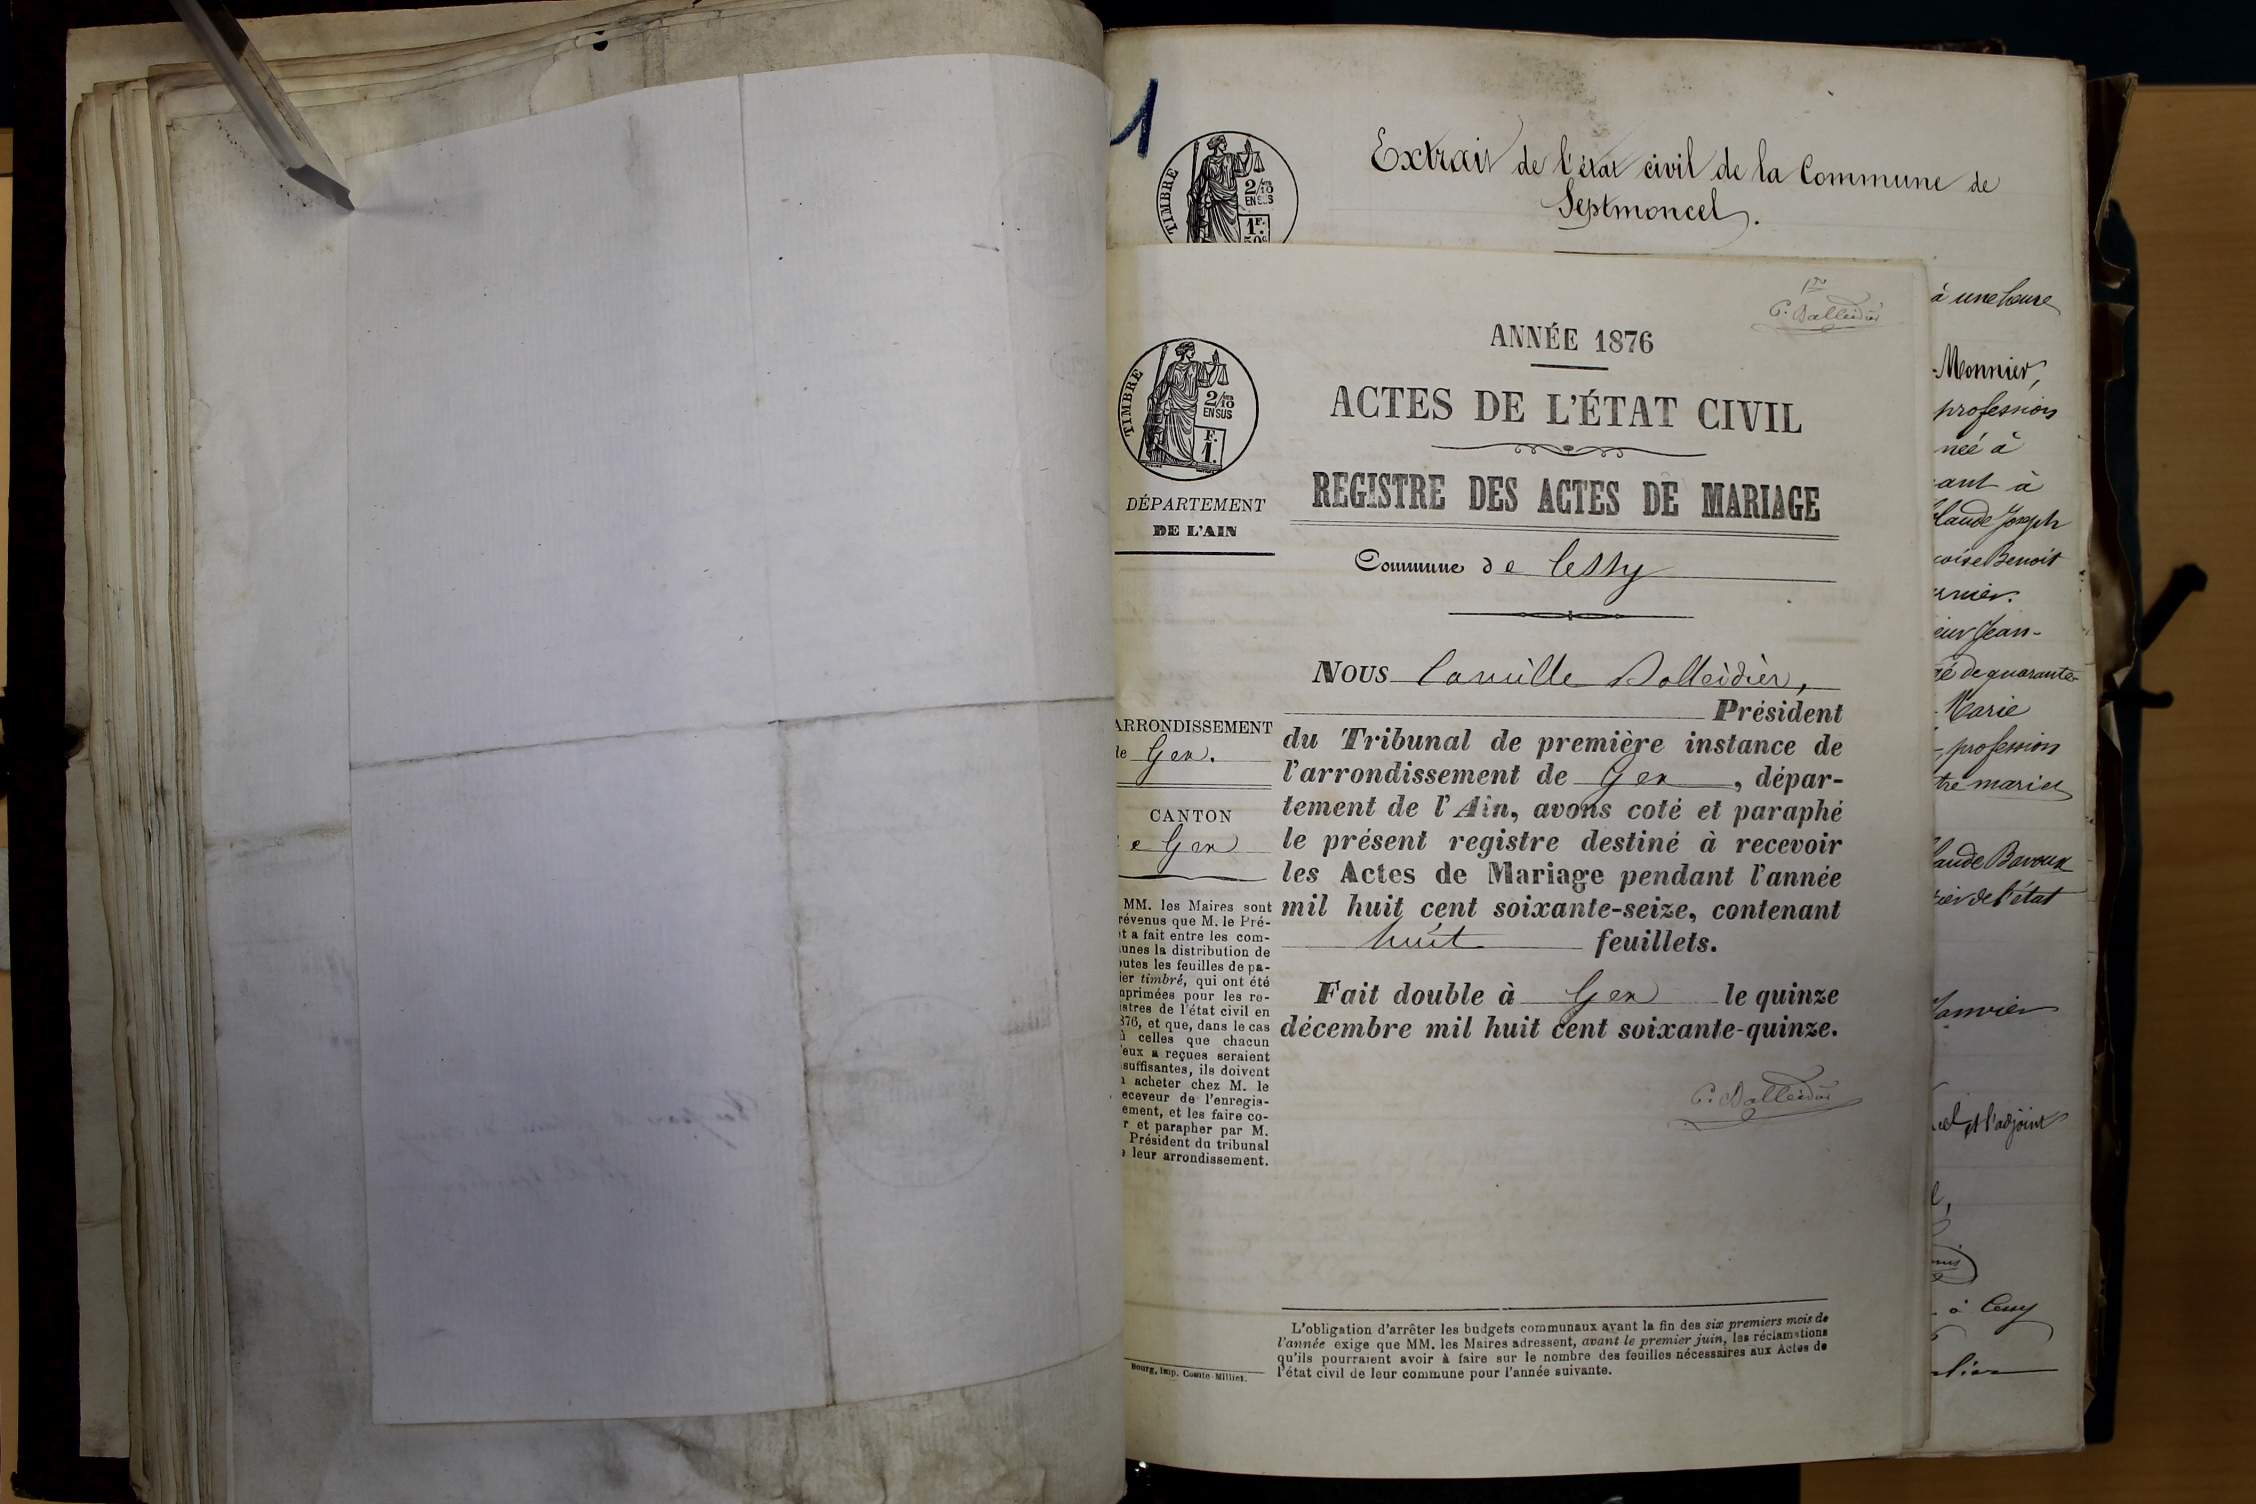 1
Extrait de l'état civil de la Commune de
Septmoncel.
TIMBRE
2/10
EN SUS
1F.
50c
à une heure
Monnier,
profession
née à
ant à
Claude Joseph
çoise Benoit
rnier.
eur Jean-
gé de quarante-
Marie
profession
tre mariés
laude Bavoux
cier de l'état
Janvier
cel, et l'adjoint
à Cessy
1re
C. Balleidier
ANNÉE 1876
ACTES DE L'ÉTAT CIVIL
REGISTRE DES ACTES DE MARIAGE
Commune de Cessy
TIMBRE
2/10
EN SUS
F.
1.
DÉPARTEMENT
DE L'AIN
ARRONDISSEMENT
de Gex.
CANTON
e Gex
MM. les Maires sont
révenus que M. le Pré-
et a fait entre les com-
unes la distribution de
outes les feuilles de pa-
ier timbré, qui ont été
mprimées pour les re-
istres de l'état civil en
876, et que, dans le cas
ù celles que chacun
'eux a reçues seraient
suffisantes, ils doivent
n acheter chez M. le
eceveur de l'enregis-
ement, et les faire co-
r et parapher par M.
Président du tribunal
e leur arrondissement.
Bourg, Imp. Comte-Milliet.
NOUS Camille Balleidier,
Président
du Tribunal de première instance de
l'arrondissement de Gex, dépar-
tement de l'Ain, avons coté et paraphé
le présent registre destiné à recevoir
les Actes de Mariage pendant l'année
mil huit cent soixante-seize, contenant
huit feuillets.
Fait double à Gex le quinze
décembre mil huit cent soixante-quinze.
C. Balleidier
L'obligation d'arrêter les budgets communaux avant la fin des six premiers mois de
l'année exige que MM. les Maires adressent, avant le premier juin, les réclamations
qu'ils pourraient avoir à faire sur le nombre des feuilles nécessaires aux Actes de
l'état civil de leur commune pour l'année suivante.